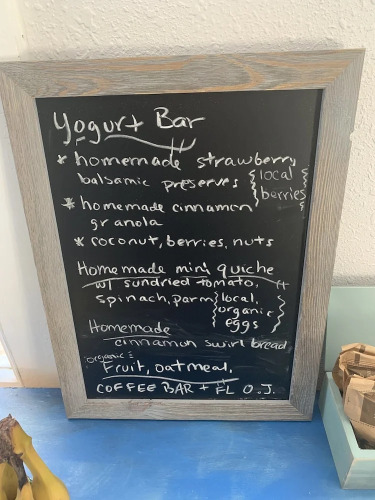 Yogurt Bar
* homemade strawberry
balsamic preserves {local
berries}
* homemade cinnamon
granola
* coconut, berries, nuts
Homemade mini quiche
w/ sundried tomato,
spinach, parm {local,
organic
eggs}
Homemade
cinnamon swirl bread
organic:
Fruit, oatmeal,
COFFEE BAR + FL O.J.